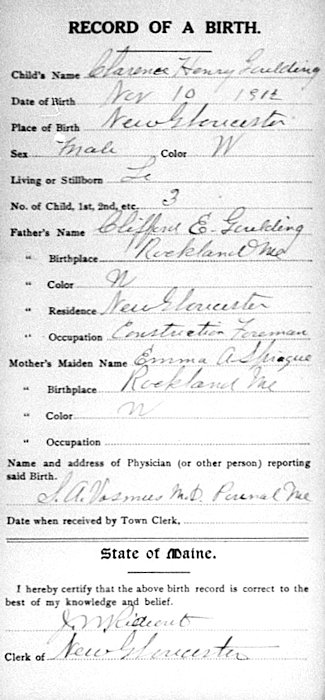 RECORD OF A BIRTH.
Child's Name Clarence Henry Goulding
Date of Birth Nov 10 1912
Place of Birth New Gloucester
Sex Male Color W
Living or Stillborn L
No. of Child, 1st, 2nd, etc. 3
Father's Name Clifford E. Goulding
" Birthplace Rockland Me
" Color W
" Residence New Gloucester
" Occupation Construction Foreman
Mother's Maiden Name Emma A Sprague
" Birthplace Rockland Me
" Color W
" Occupation
Name and address of Physician (or other person) reporting
said Birth.
Vosmus M.D. Me
Date when received by Town Clerk,
State of Maine.
I hereby certify that the above birth record is correct to the
best of my knowledge and belief.
Rideout
Clerk of New Gloucester